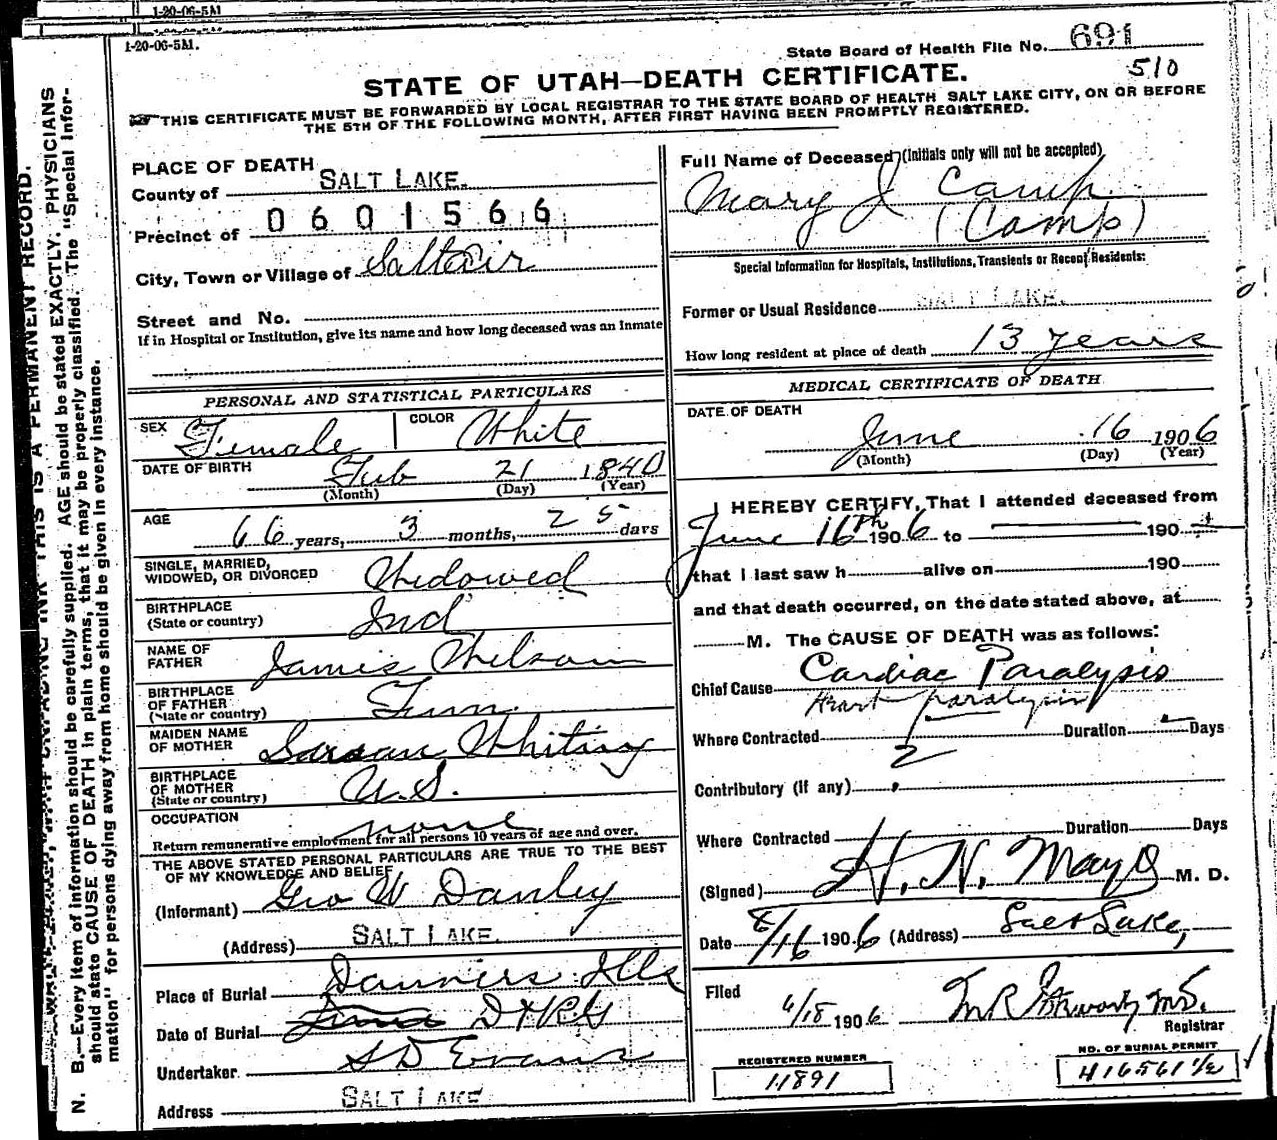 1-20-06-5M
1-20-06-5M.
State Board of Health File No. 691
510
STATE OF UTAH—DEATH CERTIFICATE.
THIS CERTIFICATE MUST BE FORWARDED BY LOCAL REGISTRAR TO THE STATE BOARD OF HEALTH SALT LAKE CITY, ON OR BEFORE
THE 5TH OF THE FOLLOWING MONTH, AFTER FIRST HAVING BEEN PROMPTLY REGISTERED.
PLACE OF DEATH
County of SALT LAKE.
0601566
Precinct of
City, Town or Village of Saltair
Street and No.
If in Hospital or Institution, give its name and how long deceased was an Inmate
PERSONAL AND STATISTICAL PARTICULARS
SEX Female COLOR White
DATE OF BIRTH Feb 21 1840
(Month) (Day) (Year)
AGE 66 years, 3 months, 25 days
SINGLE, MARRIED,
WIDOWED, OR DIVORCED Widowed
BIRTHPLACE
(State or country) Ind
NAME OF
FATHER James Wilson
BIRTHPLACE
OF FATHER
(State or country) Tenn.
MAIDEN NAME
OF MOTHER Whiting
BIRTHPLACE
OF MOTHER
(State or country) U.S.
OCCUPATION none
Return remunerative employment for all persons 10 years of age and over.
THE ABOVE STATED PERSONAL PARTICULARS ARE TRUE TO THE BEST
OF MY KNOWLEDGE AND BELIEF
(Informant) Geo W Danley
(Address) SALT LAKE.
Place of Burial Ills
Date of Burial
Undertaker S D Evans
Address SALT LAKE
Full Name of Deceased (Initials only will not be accepted)
Mary J Camp
(Camp)
Special Information for Hospitals, Institutions, Transients or Recent Residents:
Former or Usual Residence SALT LAKE.
How long resident at place of death 13 years
MEDICAL CERTIFICATE OF DEATH
DATE OF DEATH
June 16 1906
(Month) (Day) (Year)
I HEREBY CERTIFY, That I attended deceased from
June 16th 1906 to 190
that I last saw h alive on 190
and that death occurred, on the date stated above, at
M. The CAUSE OF DEATH was as follows:
Chief Cause Cardiac Paralysis
Heart paralysis
Where Contracted Duration Days
2
Contributory (if any)
Where Contracted Duration Days
(Signed) H. N. Mayo M. D.
Date 6/16 1906 (Address) Salt Lake,
Filed
6/18 1906
Registrar
REGISTERED NUMBER
11891
NO. OF BURIAL PERMIT
416561 1/2
N. B.—Every item of information should be carefully supplied. AGE should be stated EXACTLY. PHYSICIANS
should state CAUSE OF DEATH in plain terms, that it may be properly classified. The "Special Infor-
mation" for persons dying away from home should be given in every instance.
INK THIS IS A PERMANENT RECORD.